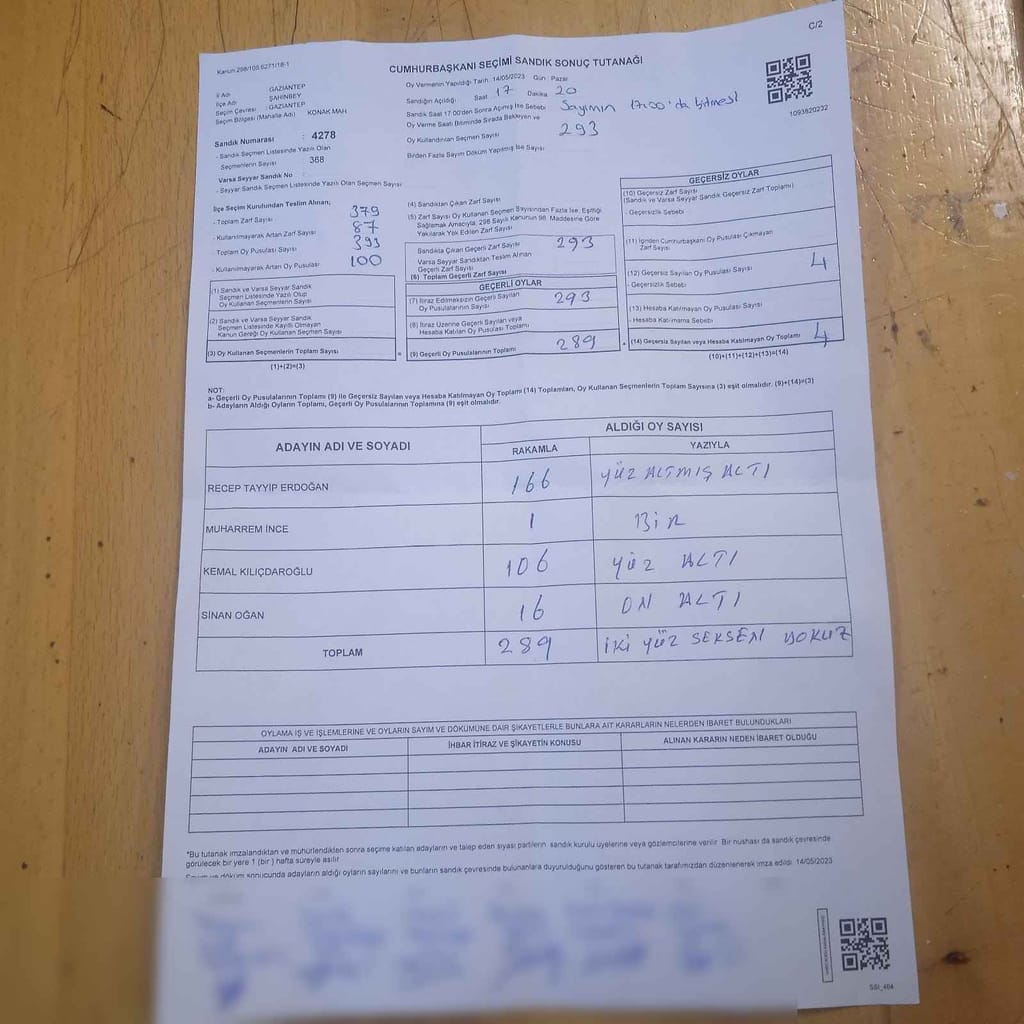 C/2
Kanun 298/105 6271/18-1
CUMHURBAŞKANI SEÇİMİ SANDIK SONUÇ TUTANAĞI
İl Adı : GAZİANTEP
İlçe Adı : ŞAHİNBEY
Seçim Çevresi : GAZİANTEP
Seçim Bölgesi (Mahalle Adı) KONAK MAH
Oy Vermenin Yapıldığı Tarih 14/05/2023 Gün Pazar
Sandığın Açıldığı Saat 17 Dakika 20
Sandık Saat 17.00'den Sonra Açılmış İse Sebebi Sayımın 17:00'da bitmesi
Oy Verme Saati Bitiminde Sırada Bekleyen ve
Oy Kullandırılan Seçmen Sayısı 293
Birden Fazla Sayım Döküm Yapılmış İse Sayısı
1093820232
Sandık Numarası : 4278
- Sandık Seçmen Listesinde Yazılı Olan
Seçmenlerin Sayısı 368
Varsa Seyyar Sandık No :
- Seyyar Sandık Seçmen Listesinde Yazılı Olan Seçmen Sayısı
İlçe Seçim Kurulundan Teslim Alınan;
- Toplam Zarf Sayısı 379
- Kullanılmayarak Artan Zarf Sayısı 87
- Toplam Oy Pusulası Sayısı 393
- Kullanılmayarak Artan Oy Pusulası 100
(1) Sandık ve Varsa Seyyar Sandık
Seçmen Listesinde Yazılı Olup
Oy Kullanan Seçmenlerin Sayısı
(2) Sandık ve Varsa Seyyar Sandık
Seçmen Listesinde Kayıtlı Olmayan
Kanun Gereği Oy Kullanan Seçmen Sayısı
(3) Oy Kullanan Seçmenlerin Toplam Sayısı
(1)+(2)=(3)
=
(4) Sandıktan Çıkan Zarf Sayısı
(5) Zarf Sayısı Oy Kullanan Seçmen Sayısından Fazla İse; Eşitliği
Sağlamak Amacıyla, 298 Sayılı Kanunun 98. Maddesine Göre
Yakılarak Yok Edilen Zarf Sayısı
Sandıkta Çıkan Geçerli Zarf Sayısı 293
Varsa Seyyar Sandıktan Teslim Alınan
Geçerli Zarf Sayısı
(6) Toplam Geçerli Zarf Sayısı
GEÇERLİ OYLAR
(7) İtiraz Edilmeksizin Geçerli Sayılan
Oy Pusulalarının Sayısı 293
(8) İtiraz Üzerine Geçerli Sayılan veya
Hesaba Katılan Oy Pusulası Toplamı
(9) Geçerli Oy Pusulalarının Toplamı 289
+
GEÇERSİZ OYLAR
(10) Geçersiz Zarf Sayısı
(Sandık ve Varsa Seyyar Sandık Geçersiz Zarf Toplamı)
- Geçersizlik Sebebi
(11) İçinden Cumhurbaşkanı Oy Pusulası Çıkmayan
Zarf Sayısı
(12) Geçersiz Sayılan Oy Pusulası Sayısı 4
- Geçersizlik Sebebi
(13) Hesaba Katılmayan Oy Pusulası Sayısı
- Hesaba Katılmama Sebebi
(14) Geçersiz Sayılan veya Hesaba Katılmayan Oy Toplamı 4
(10)+(11)+(12)+(13)=(14)
NOT:
a- Geçerli Oy Pusulalarının Toplamı (9) ile Geçersiz Sayılan veya Hesaba Katılmayan Oy Toplamı (14) Toplamları, Oy Kullanan Seçmenlerin Toplam Sayısına (3) eşit olmalıdır. (9)+(14)=(3)
b- Adayların Aldığı Oyların Toplamı, Geçerli Oy Pusulalarının Toplamına (9) eşit olmalıdır.
ADAYIN ADI VE SOYADI
ALDIĞI OY SAYISI
RAKAMLA YAZIYLA
RECEP TAYYİP ERDOĞAN 166 YÜZ ALTMIŞ ALTI
MUHARREM İNCE 1 BİR
KEMAL KILIÇDAROĞLU 106 YÜZ ALTI
SİNAN OĞAN 16 ON ALTI
TOPLAM 289 İKİ YÜZ SEKSEN DOKUZ
OYLAMA İŞ VE İŞLEMLERİNE VE OYLARIN SAYIM VE DÖKÜMÜNE DAİR ŞİKAYETLERLE BUNLARA AİT KARARLARIN NELERDEN İBARET BULUNDUKLARI
ADAYIN ADI VE SOYADI İHBAR İTİRAZ VE ŞİKAYETİN KONUSU ALINAN KARARIN NEDEN İBARET OLDUĞU
*Bu tutanak imzalandıktan ve mühürlendikten sonra seçime katılan adayların ve talep eden siyasi partilerin sandık kurulu üyelerine veya gözlemcilerine verilir. Bir nüshası da sandık çevresinde
görülecek bir yere 1 (bir) hafta süreyle asılır
Sayım ve döküm sonucunda adayların aldığı oyların sayılarını ve bunların sandık çevresinde bulunanlara duyurulduğunu gösteren bu tutanak tarafımızdan düzenlenerek imza edildi. 14/05/2023
SSI_404